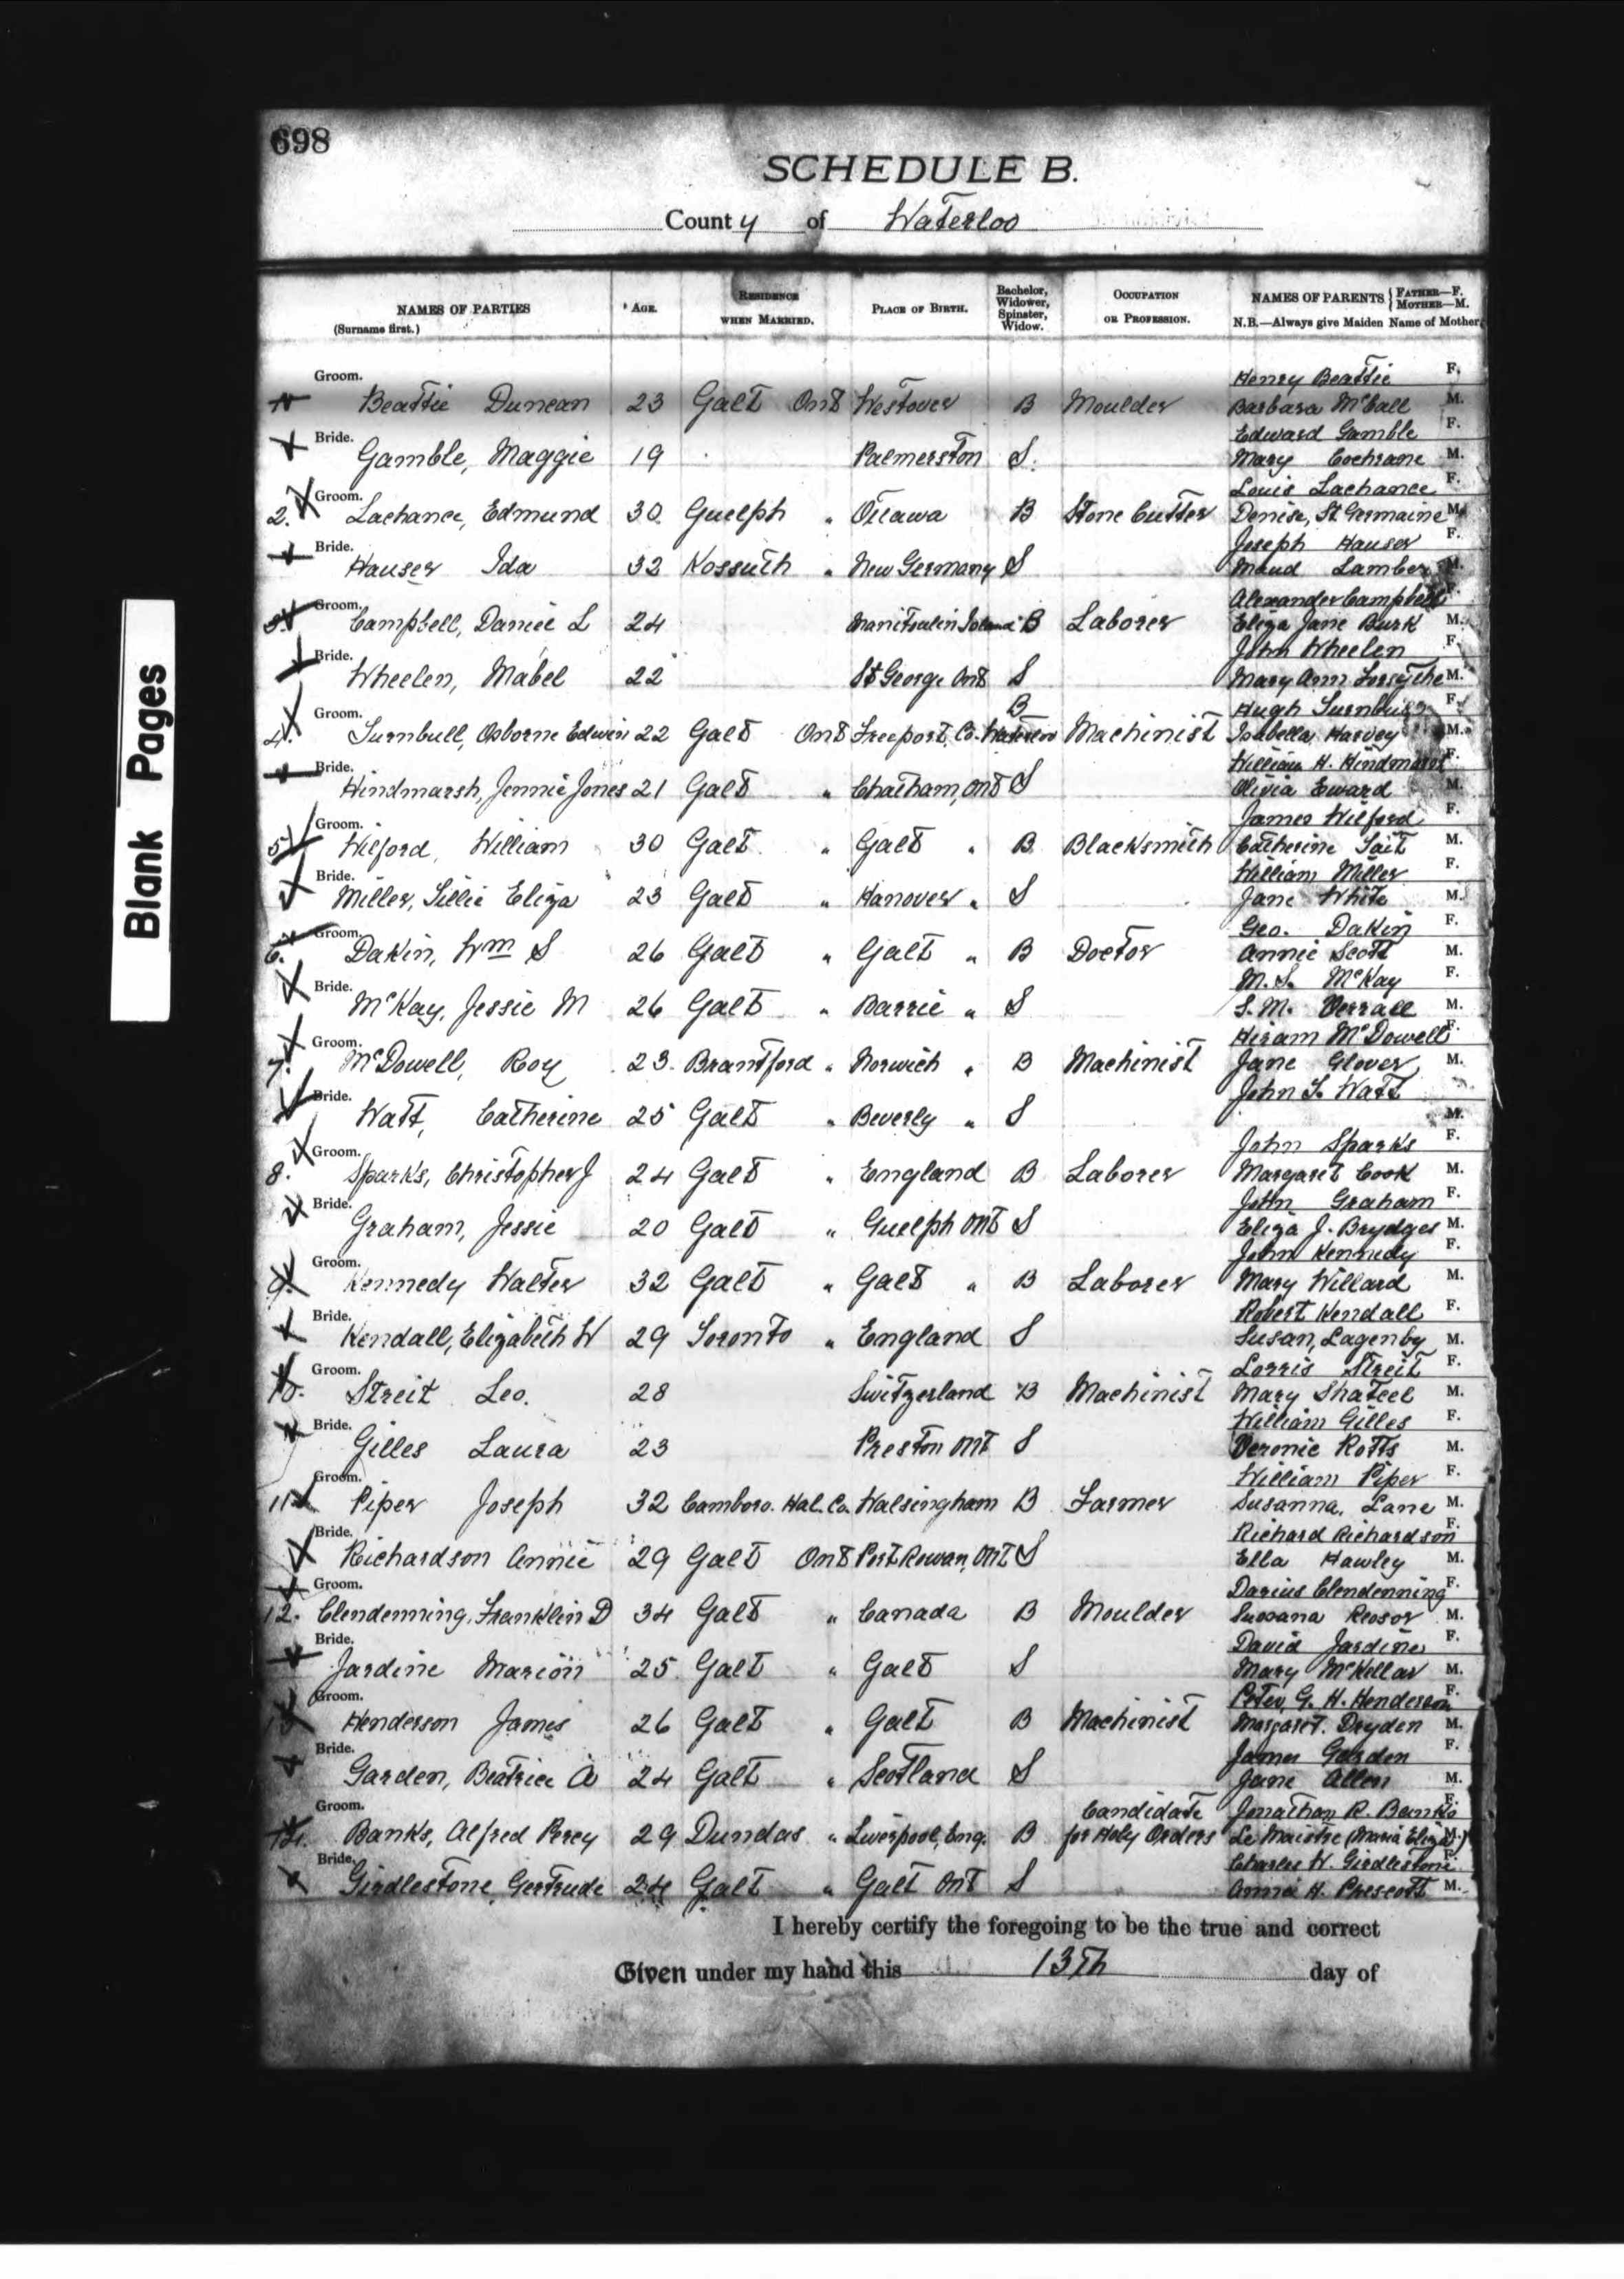 698
SCHEDULE B.
County of Waterloo
NAMES OF PARTIES (Surname first.) AGE. RESIDENCE WHEN MARRIED. PLACE OF BIRTH. Bachelor, Widower, Spinster, Widow. OCCUPATION OR PROFESSION. NAMES OF PARENTS { FATHER—F. MOTHER—M. N.B.—Always give Maiden Name of Mother.
Groom. Henry Beattie F.
Beattie Duncan 23 Galt Ont Westover B Moulder Barbara McCall M.
Bride. Edward Gamble F.
Gamble, Maggie 19 Palmerston S. Mary Cochrane M.
Groom. Louis Lachance F.
2. Lachance, Edmund 30 Guelph " Ottawa B Stone Cutter Denise, St Germaine M.
Bride. Joseph Hauser F.
Hauser Ida 32 Kossuth " New Germany S Maud Lamber M.
Groom. Alexander Campbell F.
3. Campbell, Daniel L 24 Manitoulin Island B Laborer Eliza Jane Burk M.
Bride. John Wheelen F.
Wheelen, Mabel 22 St George Ont S Mary Ann Forsythe M.
Groom. B Hugh Turnbull F.
4. Turnbull, Osborne Edwin 22 Galt Ont Freeport, Co. Waterloo Machinist Isabella Harvey M.
Bride. William H. Hindmarsh F.
Hindmarsh, Jennie Jones 21 Galt " Chatham, Ont S Olivia Eward M.
Groom. James Wilford F.
5 Wilford, William 30 Galt " Galt " B Blacksmith Catherine Tait M.
Bride. William Miller F.
Miller, Lillie Eliza 23 Galt " Hanover " S Jane White M.
Groom. Geo. Dakin F.
6. Dakin, Wm S 26 Galt " Galt " B Doctor Annie Scott M.
Bride. M. S. McKay F.
McKay, Jessie M 26 Galt " Barrie " S S. M. Verrall M.
Groom. Hiram McDowell F.
7. McDowell, Roy 23 Brantford " Norwich " B Machinist Jane Glover M.
Bride. John S. Watt
Watt, Catherine 25 Galt " Beverly " S M.
Groom. John Sparks F.
8. Sparks, Christopher J 24 Galt " England B Laborer Margaret Cook M.
Bride. John Graham F.
Graham, Jessie 20 Galt " Guelph Ont S Eliza J. Brydges M.
Groom. John Kennedy F.
9. Kennedy Walter 32 Galt " Galt " B Laborer Mary Willard M.
Bride. Robert Kendall F.
Kendall, Elizabeth W 29 Toronto " England S Susan, Lagenby M.
Groom. Lorris Streit F.
10. Streit Leo. 28 Switzerland B Machinist Mary Shateel M.
Bride. William Gilles F.
Gilles Laura 23 Preston Ont S Veronie Rotts M.
Groom. William Piper F.
11 Piper Joseph 32 Camboro. Hal. Co. Walsingham B Farmer Susanna, Lane M.
Bride. Richard Richardson F.
Richardson Annie 29 Galt Ont Port Rowan, Ont S Ella Hawley M.
Groom. Darius Clendenning F.
12. Clendenning, Franklin D 34 Galt " Canada B Moulder Susana Reosor M.
Bride. David Jardine F.
Jardine Marion 25 Galt " Galt S Mary McKellar M.
Groom. Peter, G. H. Henderson F.
13 Henderson James 26 Galt " Galt B Machinist Margaret. Dryden M.
Bride. James Garden F.
Garden, Beatrice A 24 Galt " Scotland S Jane Allen M.
Groom. Candidate Jonathan R. Banks F.
Banks, Alfred Percy 29 Dundas " Liverpool, Eng. B for Holy Orders Le Maistre (Maria Eliza) M.
Bride. Charles W. Girdlestone F.
Girdlestone, Gertrude 24 Galt " Galt Ont S Annie H. Prescott M.
I hereby certify the foregoing to be the true and correct
Given under my hand this 13th day of
Blank Pages